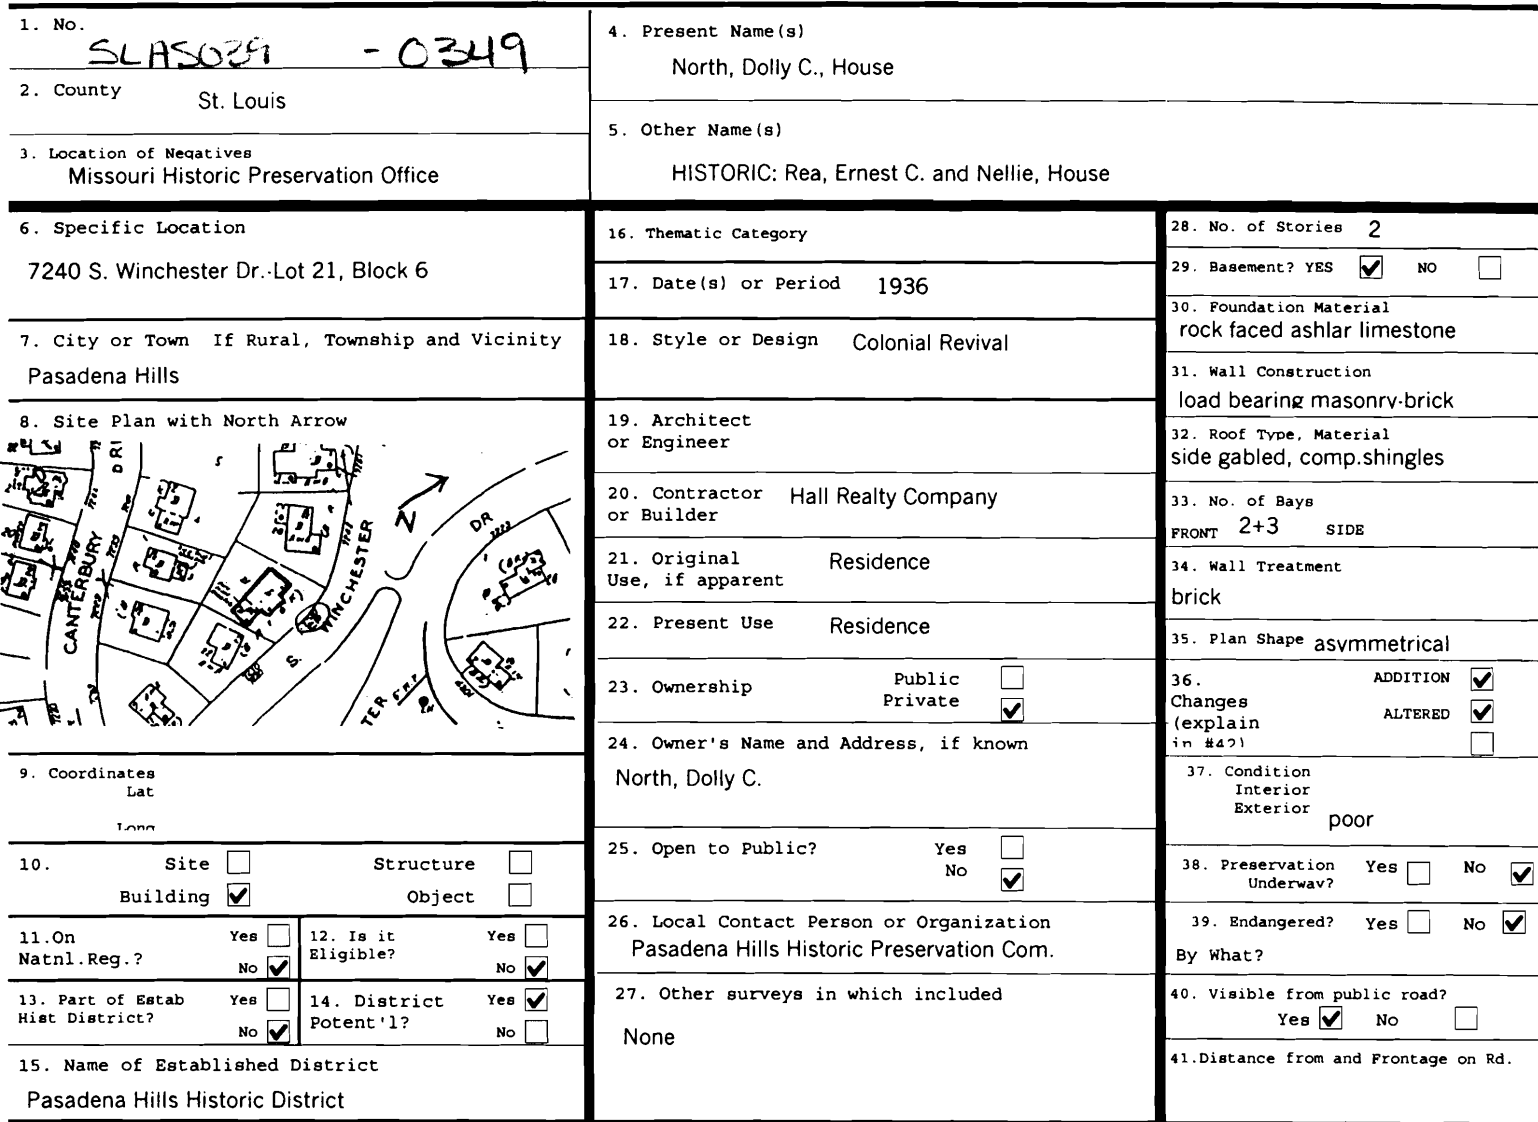 1. No.
SLAS039 - 0349
2. County
St. Louis
3. Location of Negatives
Missouri Historic Preservation Office
4. Present Name(s)
North, Dolly C., House
5. Other Name(s)
HISTORIC: Rea, Ernest C. and Nellie, House
6. Specific Location
7240 S. Winchester Dr.-Lot 21, Block 6
7. City or Town If Rural, Township and Vicinity
Pasadena Hills
8. Site Plan with North Arrow
DRI
S
N
DR
CANTERBURY
WINCHESTER
S.
TER
9. Coordinates
Lat
Long
10.
Site
Structure
Building
Object
11.On Yes
Natnl.Reg.?
No
12. Is it Yes
Eligible?
No
13. Part of Estab Yes
Hist District?
No
14. District Yes
Potent'l?
No
15. Name of Established District
Pasadena Hills Historic District
16. Thematic Category
17. Date(s) or Period 1936
18. Style or Design Colonial Revival
19. Architect
or Engineer
20. Contractor Hall Realty Company
or Builder
21. Original Residence
Use, if apparent
22. Present Use Residence
23. Ownership Public
Private
24. Owner's Name and Address, if known
North, Dolly C.
25. Open to Public? Yes
No
26. Local Contact Person or Organization
Pasadena Hills Historic Preservation Com.
27. Other surveys in which included
None
28. No. of Stories 2
29. Basement? YES NO
30. Foundation Material
rock faced ashlar limestone
31. Wall Construction
load bearing masonry-brick
32. Roof Type, Material
side gabled, comp.shingles
33. No. of Bays
FRONT 2+3 SIDE
34. Wall Treatment
brick
35. Plan Shape asymmetrical
36. ADDITION
Changes
(explain ALTERED
in #42)
37. Condition
Interior
Exterior
poor
38. Preservation Yes No
Underway?
39. Endangered? Yes No
By What?
40. Visible from public road?
Yes No
41.Distance from and Frontage on Rd.